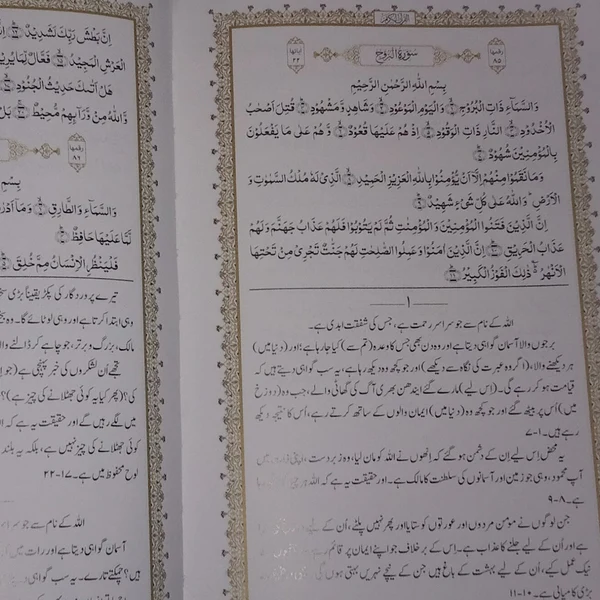 القرآن الحکیم
رقمها
۸۵
سورة البروج
آیاتها
۲۲
بِسْمِ اللّٰهِ الرَّحْمٰنِ الرَّحِیْمِ
وَالسَّمَآءِ ذَاتِ الْبُرُوْجِ ﴿۱﴾ وَالْیَوْمِ الْمَوْعُوْدِ ﴿۲﴾ وَشَاهِدٍ وَّمَشْهُوْدٍ ﴿۳﴾ قُتِلَ اَصْحٰبُ
الْاُخْدُوْدِ ﴿۴﴾ النَّارِ ذَاتِ الْوَقُوْدِ ﴿۵﴾ اِذْ هُمْ عَلَیْهَا قُعُوْدٌ ﴿۶﴾ وَّهُمْ عَلٰی مَا یَفْعَلُوْنَ
بِالْمُؤْمِنِیْنَ شُهُوْدٌ ﴿۷﴾
وَمَا نَقَمُوْا مِنْهُمْ اِلَّآ اَنْ یُّؤْمِنُوْا بِاللّٰهِ الْعَزِیْزِ الْحَمِیْدِ ﴿۸﴾ الَّذِیْ لَهٗ مُلْكُ السَّمٰوٰتِ وَ
الْاَرْضِ ؕ وَاللّٰهُ عَلٰی كُلِّ شَیْءٍ شَهِیْدٌ ﴿۹﴾
اِنَّ الَّذِیْنَ فَتَنُوا الْمُؤْمِنِیْنَ وَ الْمُؤْمِنٰتِ ثُمَّ لَمْ یَتُوْبُوْا فَلَهُمْ عَذَابُ جَهَنَّمَ وَلَهُمْ
عَذَابُ الْحَرِیْقِ ﴿۱۰﴾ اِنَّ الَّذِیْنَ اٰمَنُوْا وَعَمِلُوا الصّٰلِحٰتِ لَهُمْ جَنّٰتٌ تَجْرِیْ مِنْ تَحْتِهَا
الْاَنْهٰرُ ؕ ذٰلِكَ الْفَوْزُ الْكَبِیْرُ ﴿۱۱﴾
۱
اللہ کے نام سے جو سراسر رحمت ہے، جس کی شفقت ابدی ہے۔
برجوں والا آسمان گواہی دیتا ہے اور وہ دن بھی جس کا وعدہ (تم سے) کیا جا رہا ہے؛ اور (دنیا میں)
ہر دیکھنے والا، (اگر وہ عبرت کی نگاہ سے دیکھے) اور جو کچھ وہ دیکھ رہا ہے، یہ سب گواہی دیتے ہیں کہ
قیامت ہو کر رہے گی۔ (اِس لیے) مارے گئے ایندھن بھری آگ کی گھاٹی والے، جب وہ (دوزخ
میں) اُس پر بیٹھے ہوں گے اور جو کچھ وہ (دنیا میں) ایمان والوں کے ساتھ کرتے رہے، اُس کا نتیجہ دیکھ
رہے ہیں۔ ۱-۷
یہ محض اِس لیے اِن کے دشمن ہو گئے کہ اِنھوں نے اللہ کو مان لیا، وہ زبردست، اپنی ذات میں
آپ محمود، وہی جو زمین اور آسمانوں کی سلطنت کا مالک ہے۔ اور حقیقت یہ ہے کہ اللہ ہر چیز
ہے۔ ۸-۹
جن لوگوں نے مومن مردوں اور عورتوں کو ستایا اور پھر نہیں پلٹے، اُن کے لیے
ہے اور اُن کے لیے جلنے کا عذاب ہے۔ اِس کے برخلاف جو اپنے ایمان پر قائم رہے
نیک عمل کیے، اُن کے لیے بہشت کے باغ ہیں جن کے نیچے نہریں بہتی ہوں گی
بڑی کامیابی ہے۔ ۱۰-۱۱
اِنَّ بَطْشَ رَبِّكَ لَشَدِیْدٌ ﴿۱۲﴾
الْعَرْشِ الْمَجِیْدُ ﴿۱۵﴾ فَعَّالٌ لِّمَا یُرِیْدُ
هَلْ اَتٰىكَ حَدِیْثُ الْجُنُوْدِ ﴿۱۷﴾
وَّاللّٰهُ مِنْ وَّرَآئِهِمْ مُّحِیْطٌ ﴿۲۰﴾ بَلْ
رقمها
۸۶
بِسْمِ
وَالسَّمَآءِ وَالطَّارِقِ ﴿۱﴾ وَمَآ اَدْرٰ
لَّمَّا عَلَیْهَا حَافِظٌ ﴿۴﴾
فَلْیَنْظُرِ الْاِنْسَانُ مِمَّ خُلِقَ ﴿۵﴾
تیرے پروردگار کی پکڑ یقیناً بڑی سخت
وہی ابتدا کرتا ہے اور وہی لوٹائے گا۔ وہ بخشنے
مالک، بزرگ و برتر، جو چاہے کر ڈالنے والا
تجھے اُن لشکروں کی خبر پہنچی ہے (جو
کی؟ (پھر کیا یہ کوئی جھٹلانے کی چیز ہے)؟
میں لگے رہیں گے اور حقیقت یہ ہے کہ
کوئی جھٹلانے کی چیز نہیں ہے، بلکہ یہ بلند
لوح محفوظ میں ہے۔ ۱۲-۲۲
اللہ کے نام سے جو سراسر
آسمان گواہی دیتا ہے اور رات میں
ہیں؟ چمکتے تارے۔ یہ سب گواہی